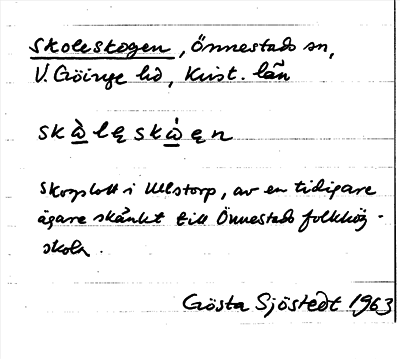 Skoleskogen, Önnestads sn,
V. Göinge hd, Krist. län
skògslott i Ullstorp, av en tidigare
ägare skänkt till Önnestads folkhög-
skola.
Gösta Sjöstedt 1963